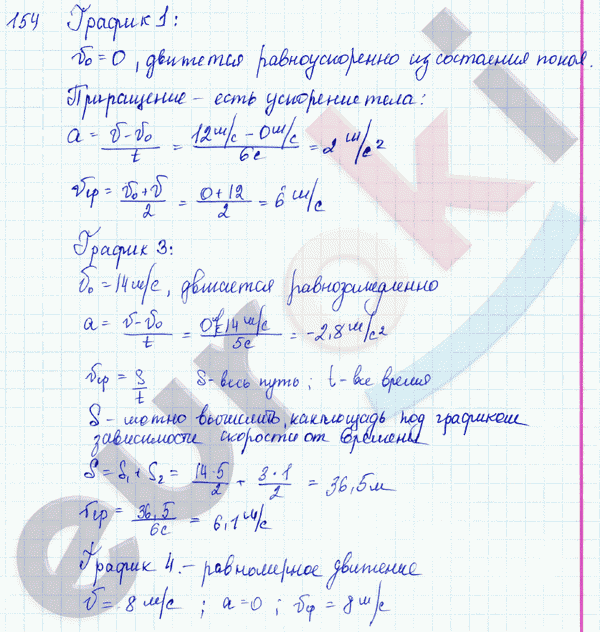 154 График 1:
v₀ = 0, движется равноускоренно из состояния покоя.
Приращение – есть ускорение тела:
a = (v - v₀)/t = (12 м/с - 0 м/с)/6с = 2 м/с²
vср = (v₀ + v)/2 = (0 + 12)/2 = 6 м/с
График 3:
v₀ = 14 м/с, двигается равнозамедленно
a = (v - v₀)/t = (0 - 14 м/с)/5с = -2,8 м/с²
vср = S/t S - весь путь; t - все время
S - можно вычислить, как площадь под графиком
зависимости скорости от времени
S = S₁ + S₂ = (14·5)/2 + (3·1)/2 = 36,5 м
vср = 36,5/6с = 6,1 м/с
График 4. – равномерное движение
v = 8 м/с ; a = 0 ; vср = 8 м/с
euroki